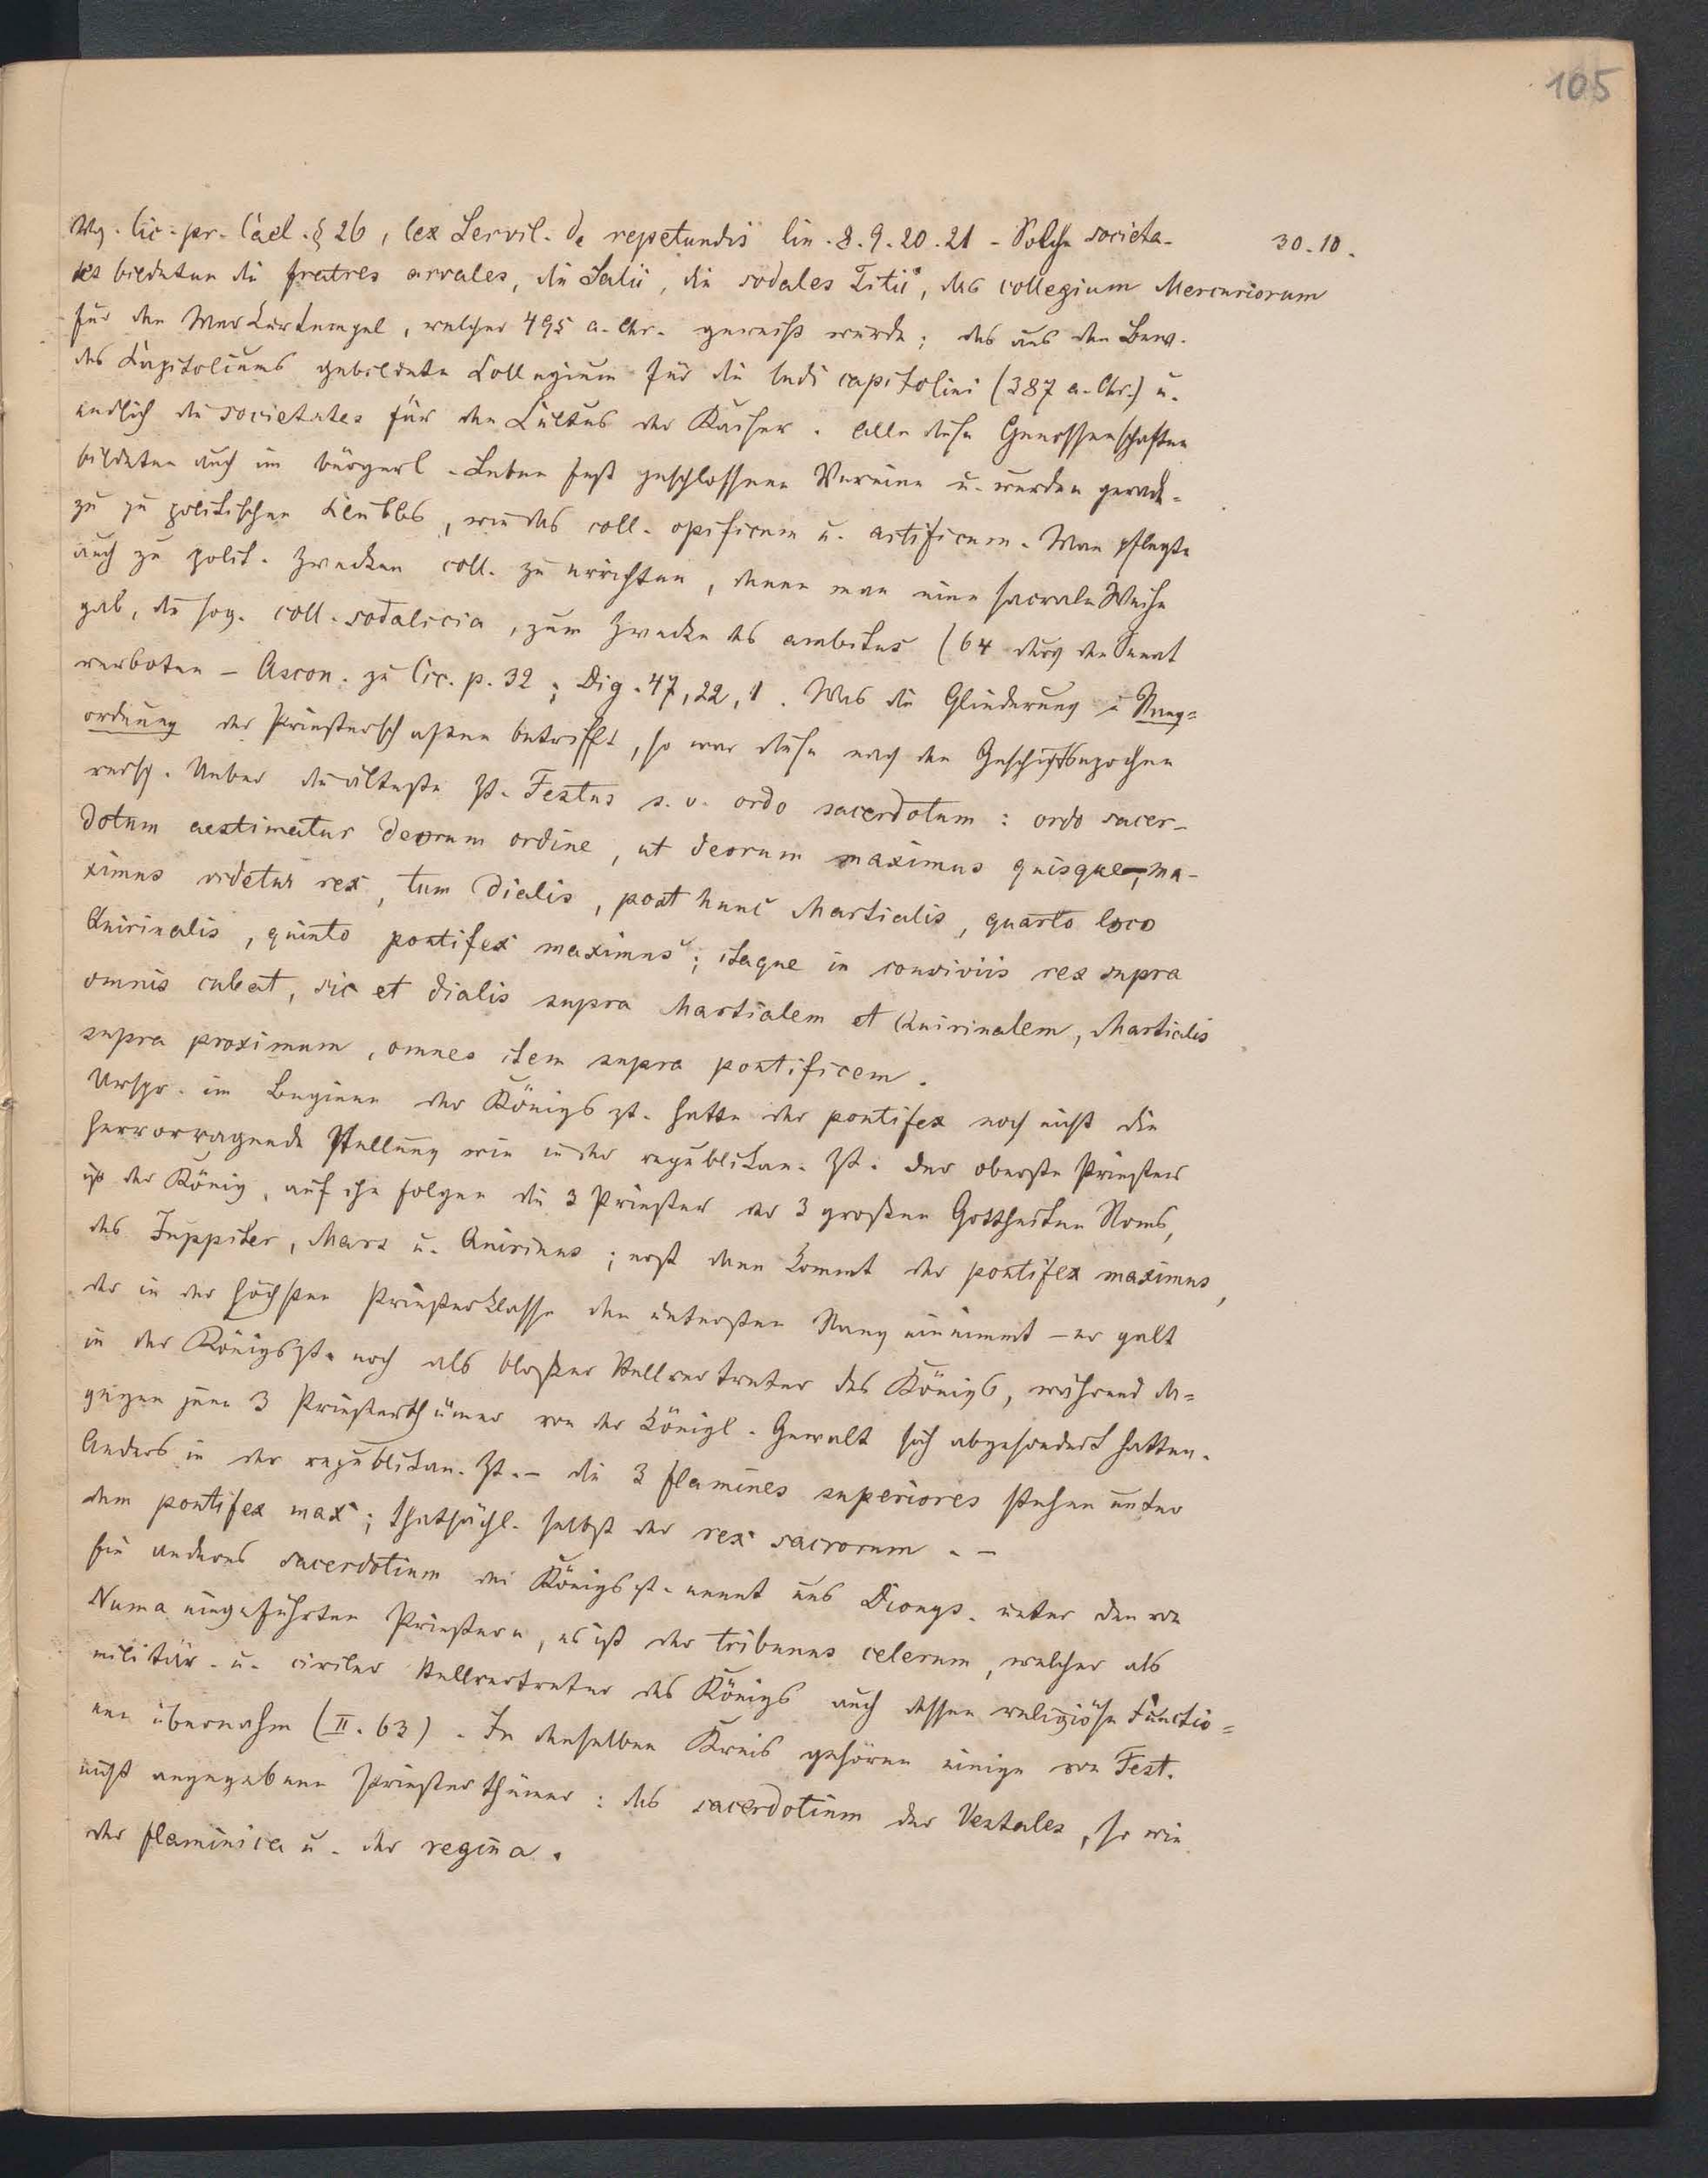 105
30.10.
Vg. Cic. pr. Cael. § 26, lex Servil. de repetundis lin. 8. 9. 20. 21 - Solche societa-
tes bildeten die fratres arvales, die Salii, die sodales Titii, das collegium Mercuriorum
für den Merkurtempel, welcher 495 a. Chr. geweiht wurde; das aus den Bew.
des Kapitoliums gebildete Collegium für die ludi capitolini (387 a. Chr.) u.
endlich die societates für den Cultus der Kaiser. Alle diese Genossenschaften
bildeten auch im bürgerl. Leben fest geschlossene Vereine u. wurden gerade-
zu zu politischen Clubbs, wie das coll. opificum u. artificum. Man pflegte
auch zu polit. Zwecken coll. zu errichten, denen man eine sacrale Weihe
gab, die sog. coll. sodalicia, zum Zwecke des ambitus (64 durch den Senat
verboten - Ascon. zu Cic. p. 32; Dig. 47, 22, 1. Was die Gliederung u. Rang-
ordnung der Priesterschaften betrifft, so war diese nach den Geschichtsepochen
versch. Ueber die älteste Zt. Festus s. v. ordo sacerdotum: ordo sacer-
dotum aestimatur deorum ordine, ut deorum maximus quisque, ma-
ximus videtur rex, tum Dialis, post hunc Martialis, quarto loco
Quirinalis, quinto pontifex maximus; itaque in conviviis rex supra
omnis cubat, sic et dialis supra Martialem et Quirinalem, Martialis
supra proximum, omnes item supra pontificem.
Urspr. im Beginne der Königszt. hatte der pontifex noch nicht die
hervorragende Stellung wie in der republikan. Zt. Der oberste Priester
ist der König, auf ihn folgen die 3 Priester der 3 großen Gottheiten Roms,
des Juppiter, Mars u. Quirinus; erst dann kommt der pontifex maximus,
der in der höchsten Priesterklasse den untersten Rang einnimmt - er galt
in der Königszt. noch als bloßer Stellvertreter des Königs, während da-
gegen jene 3 Priesterthümer von der königl. Gewalt sich abgesondert hatten.
Anders in der republikan. Zt. - die 3 flamines superiores stehen unter
dem pontifex max; thatsächl. selbst der rex sacrorum. -
Ein anderes sacerdotium der Königszt. nennt uns Dionys. unter den von
Numa eingeführten Priestern, es ist der tribunus celerum, welcher als
militär. u. civiler Stellvertreter des Königs auch dessen religiöse Functio-
nen übernahm (II. 63). In denselben Kreis gehören einige von Fest.
nicht angegebene Priesterthümer: das sacerdotium der Vestales, so wie
der flaminica u. der regina.